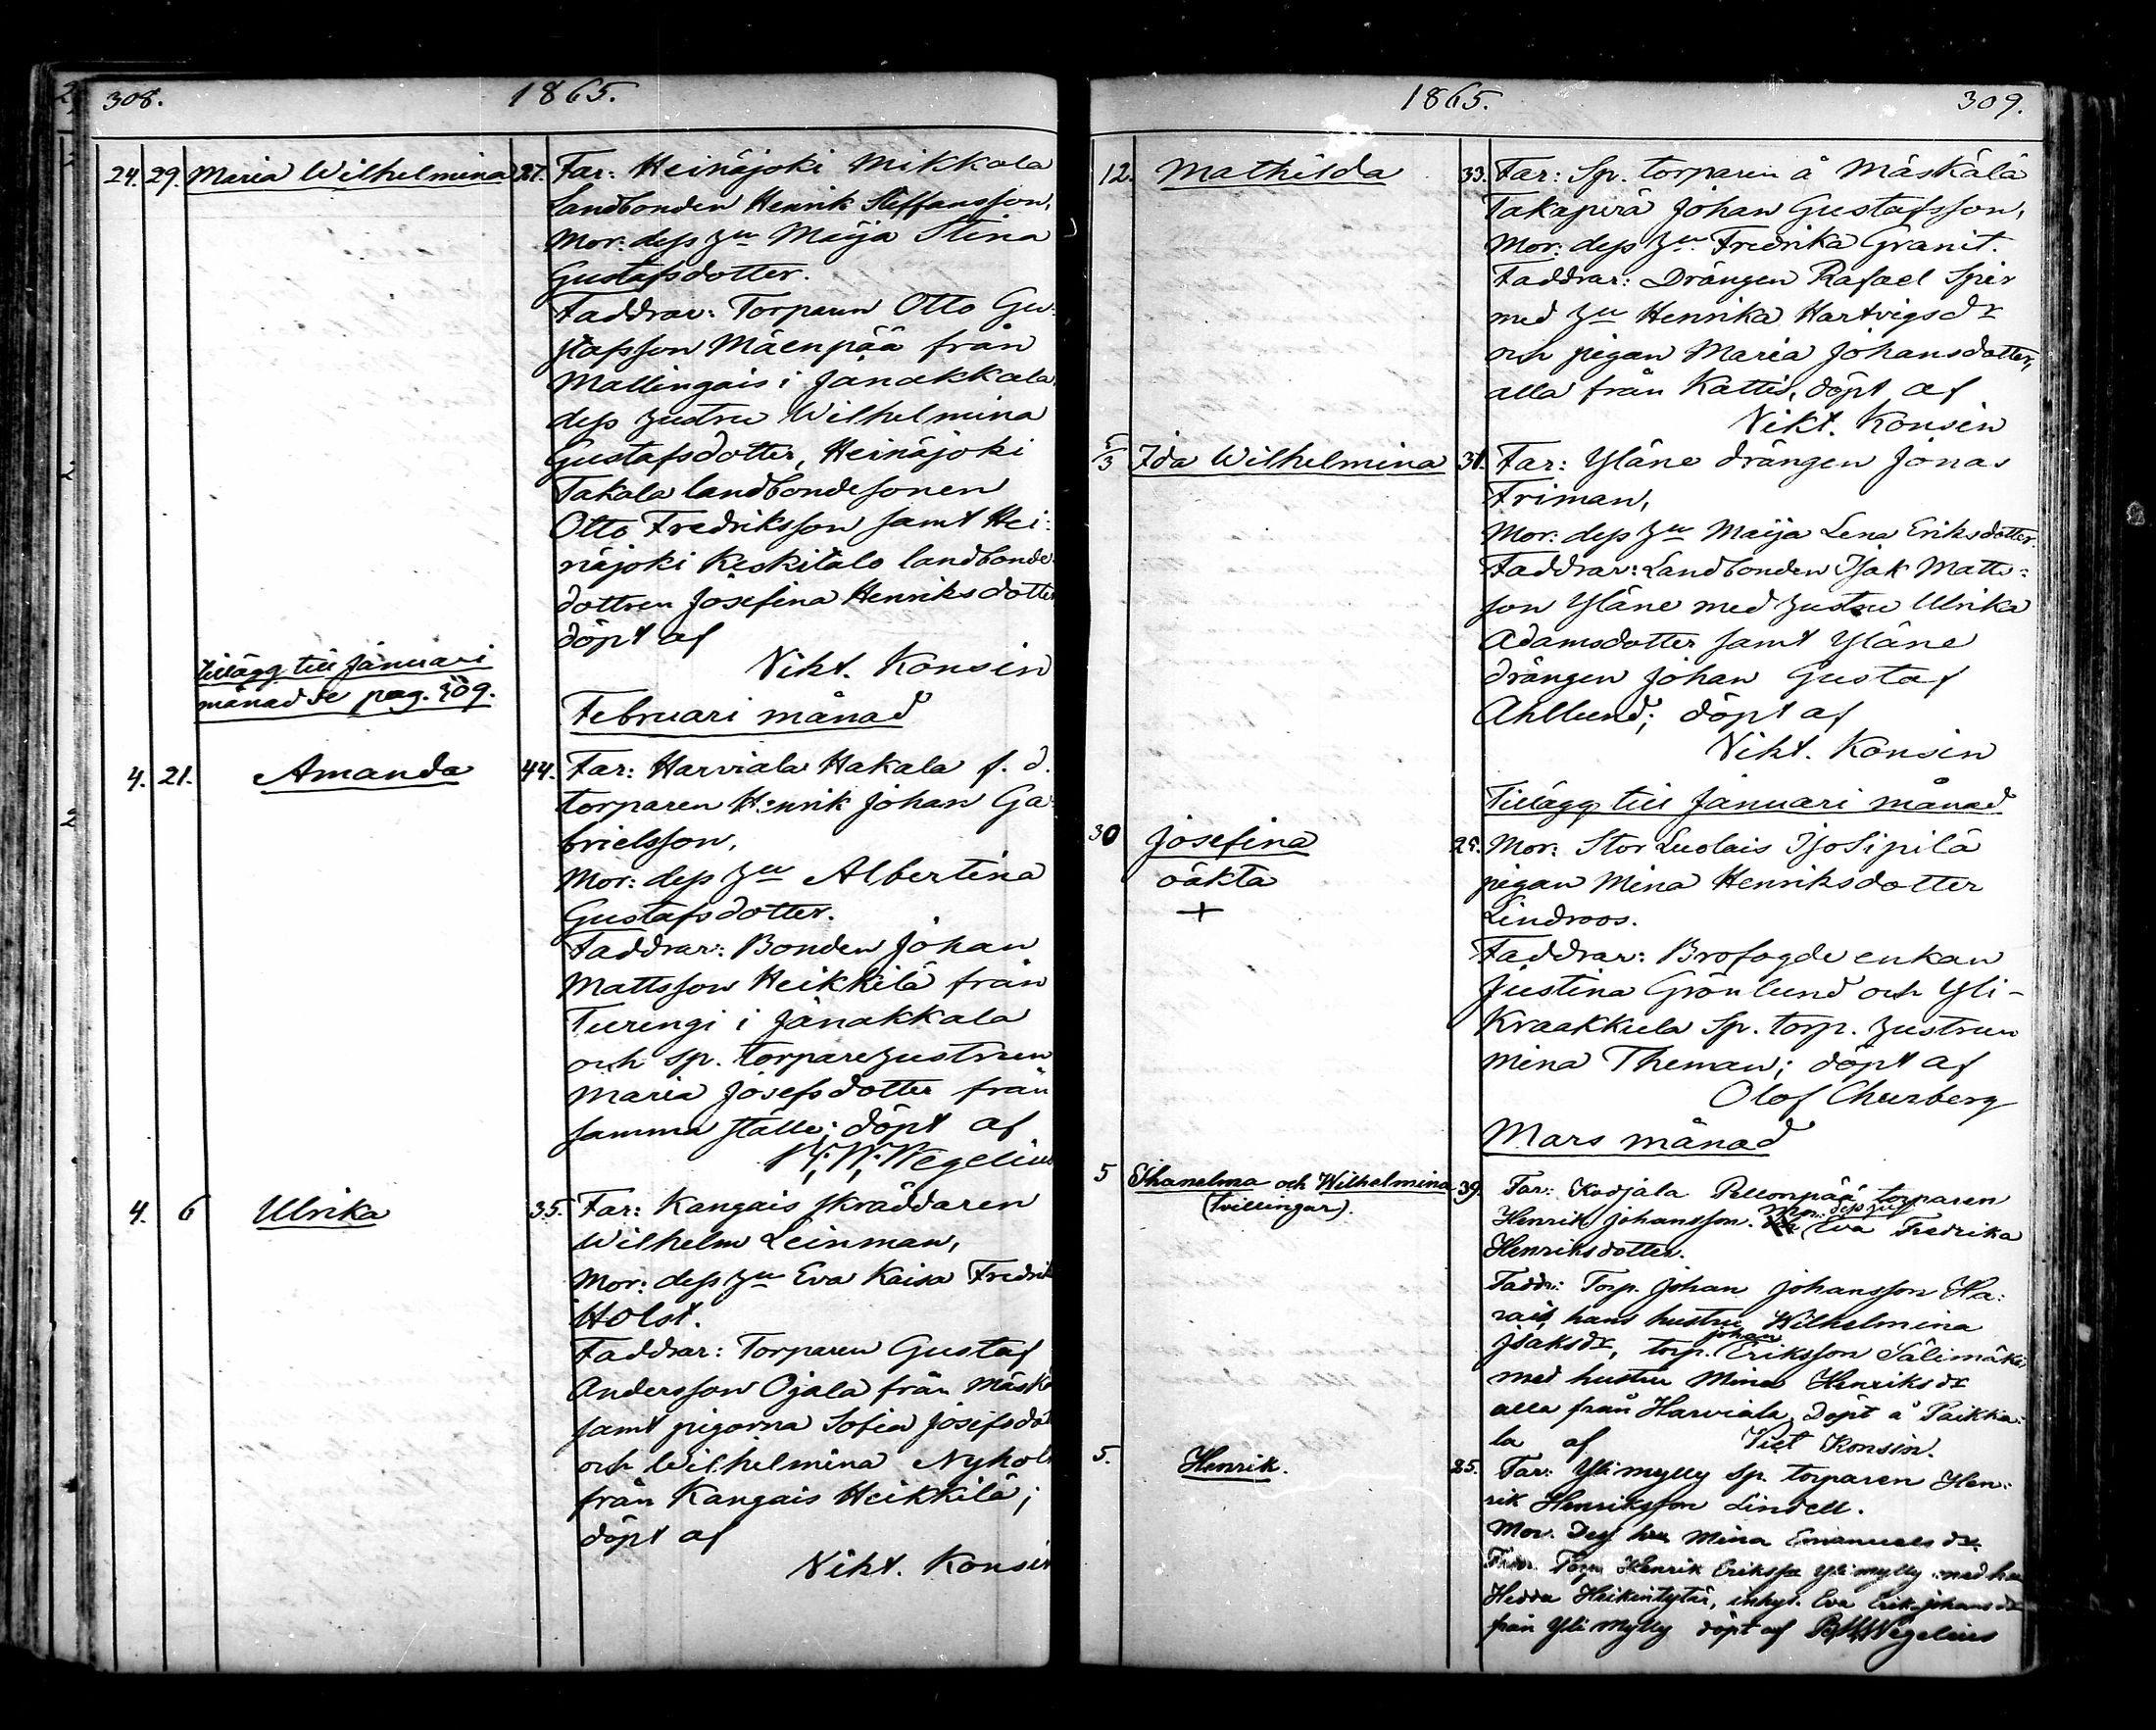 308. 1865.
24. 29. Maria Wilhelmina 27. Far: Heinäjoki Mikkola
Landbonden Henrik Steffansson,
Mor: dess hu Maija Stina
Gustafsdotter.
Faddrar: Torparen Otto Gu-
stafsson Mäenpää från
Mallingais i Janakkala,
dess hustru Wilhelmina
Gustafsdotter, Heinäjoki
Takala landbondesonen
Otto Fredriksson samt Hei:
näjoki Keskitalo landbonde
dottren Josefina Henriksdotter
döpt af
Vikt. Konsin
Tillägg till Januari
månad se pag. 309.
Februari månad
4. 21. Amanda 44. Far: Harviala Hakala f. d.
torparen Henrik Johan Ga-
brielsson,
Mor: dess hu Albertina
Gustafsdotter.
Faddrar: Bonden Johan
Mattsson Heikkilä från
Turengi i Janakkala
och sp. torparehustrun
Maria Josefsdotter från
samma ställe; döpt af
Wegelius
4. 6 Ulrika 35. Far: Kangais skräddaren
Wilhelm Leinman,
Mor: dess hu Eva Kaisa Fredrik
Holst.
Faddrar: Torparen Gustaf
Andersson Ojala från Mäskä
samt pigorna Sofia Josefsdot
och Wilhelmina Nyhol
från Kangais Heikkilä;
döpt af
Vikt. Konsin
1865. 309.
12. Mathilda 33. Far: Sp. torparen å Mäskälä
Takaperä Johan Gustafsson,
Mor: dess hu Fredrika Granit.
Faddrar: Drängen Rafael Spir
med hu Henrika Hartvigsdr
och pigan Maria Johansdotter,
alla från Kattis, döpt af
Vikt. Konsin
5/3 Ida Wilhelmina 31. Far: Yläne drängen Jonas
Friman,
Mor: dess hu Maija Lena Eriksdotter.
Faddrar: Landbonden Isak Matts:
son Yläne med hustru Ulrika
Adamsdotter samt Yläne
drängen Johan Gustaf
Ahllund; döpt af
Vikt. Konsin
Tillägg till Januari månad
30 Josefina 25. Mor: Stor Luolais Iso Sipilä
oäkta pigan Mina Henriksdotter
+ Lindroos.
Faddrar: Brofogde enkan
Justina Grönlund och Yli-
Kraakkula Sp. torp. hustrun
Mina Theman; döpt af
Olof Churberg
Mars månad
5 Ehanelma och Wilhelmina 39. Far: Kodjala Pellonpää torparen
(tvillingar). Henrik Johansson. Mor: dess hust Eva Fredrika
Henriksdotter.
Faddr: Torp. Johan Johansson Ha:
rais, hans hustru Wilhelmina
Isaksdr, torp. Johan Eriksson Sälimäki
med hustru Mina Henriksdr
alla från Harviala. Döpt å Paikka-
la af Vict Konsin.
5. Henrik. 25. Far: Yli mylly Sp. torparen Hen:
rik Henriksson Lindell.
Mor. Dess hu Mina Emanuelsdr.
Faddr. Torp Henrik Eriksson Yli mylly med hu
Hedda Heikintytär, inhys. Eva Erik Johansdr
från Yli Mylly döpt af Wegelius